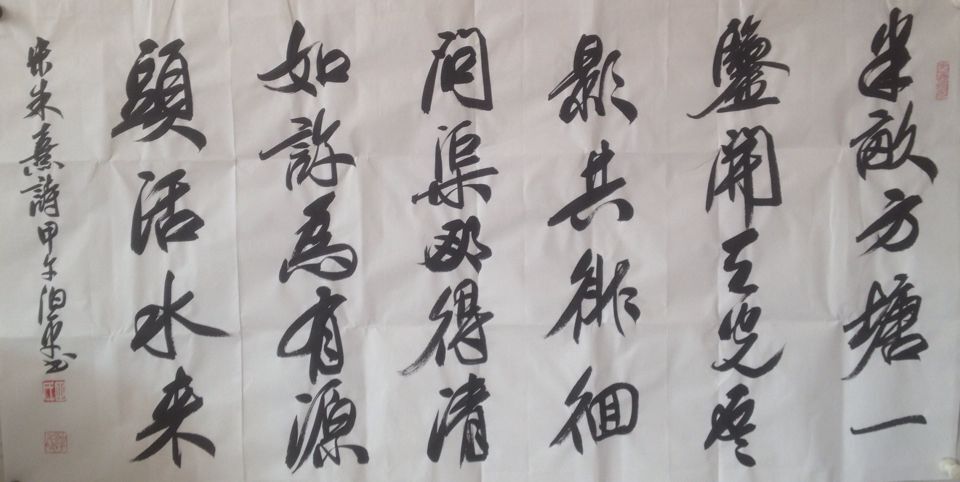 半畝方塘一
鑒開天光雲
影共徘徊
問渠那得清
如許為有源
頭活水来
宋朱熹詩甲午泊